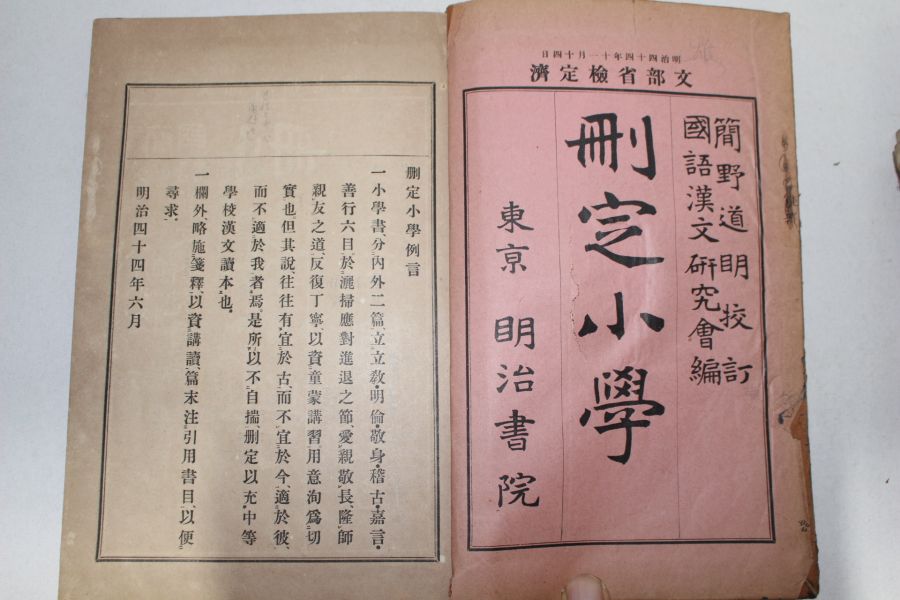 明治四十四年十一月十四日
文部省檢定濟
簡野道明校訂
國語漢文研究會編
刪定小學
東京 明治書院
刪定小學例言
一小學書、分內外二篇、立立敎・明倫・敬身・稽古・嘉言・
善行六目、於灑掃應對進退之節、愛親敬長、隆師
親友之道、反復丁寧、以資童蒙講習、用意洵爲切
實也、但其說、往往有宜於古、而不宜於今、適於彼、
而不適於我者焉、是所以不自揣、刪定以充中等
學校漢文讀本也。
一欄外略施箋釋、以資講讀、篇末注引用書目、以便
尋求。
明治四十四年六月